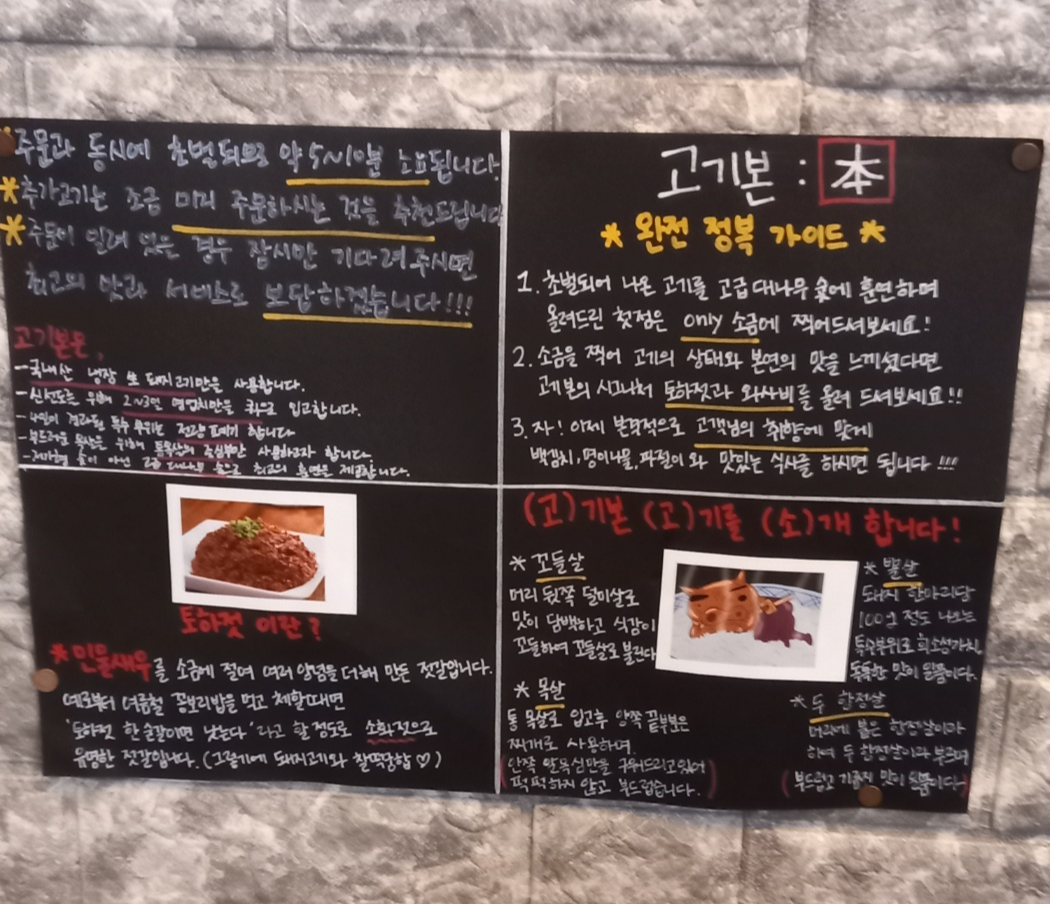 주문과 동시에 초벌되므로 약 5~10분 소요됩니다.
*추가고기는 조금 미리 주문하시는 것을 추천드립니다
*주문이 밀려 있는 경우 잠시만 기다려주시면
최고의 맛과 서비스로 보답하겠습니다!!!
고기본은,
-국내산 냉장 생 돼지고기만을 사용합니다.
-신선도를 위해 2~3일 영업치만을 최소로 입고합니다.
-4일이 경과된 특수 부위는 전량 폐기 합니다
-부드러운 목살을 위해 통목살의 중심부만 사용하고자 합니다.
숯이 아닌 고급 대나무 숯으로 최고의 훈연을 제공합니다.
고기본 : 本
* 완전 정복 가이드 *
1. 초벌되어 나온 고기를 고급 대나무 숯에 훈연하며
올려드린 첫점은 only 소금에 찍어드셔보세요!
2. 소금을 찍어 고기의 상태와 본연의 맛을 느끼셨다면
고기본의 시그니처 토하젓과 와사비를 올려 드셔보세요!!
3. 자! 이제 본격적으로 고객님의 취향에 맞게
백김치, 명이나물, 파절이 와 맛있는 식사를 하시면 됩니다!!!
토하젓 이란?
*민물새우를 소금에 절여 여러 양념을 더해 만든 젓갈입니다.
예로부터 여름철 꽁보리밥을 먹고 체할때면
'토하젓 한 숟갈이면 낫는다'라고 할 정도로 소화젓으로
유명한 젓갈입니다. (그렇기에 돼지고기와 찰떡궁합♡)
(고)기본 (고)기를 (소)개 합니다!
* 꼬들살
머리 뒷쪽 덜미살로
맛이 담백하고 식감이
꼬들하여 꼬들살로 불린다
* 목살
통 목살로 입고후 양쪽 끝부분은
찌개로 사용하며,
(안쪽 알목심만을 구워드리고있어
퍽퍽하지 않고 부드럽습니다.)
* 뽈살
돼지 한마리당
100g 정도 나오는
특수부위로 희소성가치,
독특한 맛이 일품이다.
* 두 항정살
머리에 붙은 항정살이라
하여 두 항정살이라 부르며
(부드럽고 기름진 맛이 일품이다.)